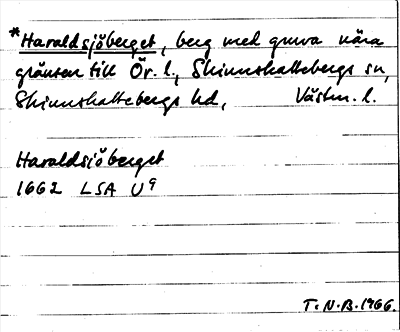 *Haraldsjöberget, berg med gruva nära
gränsen till Ör. l., Skinnskattebergs sn,
Skinnskattebergs hd, Västm. l.
Haraldsjöberget
1662 LSA U9
T.N.B.1966.